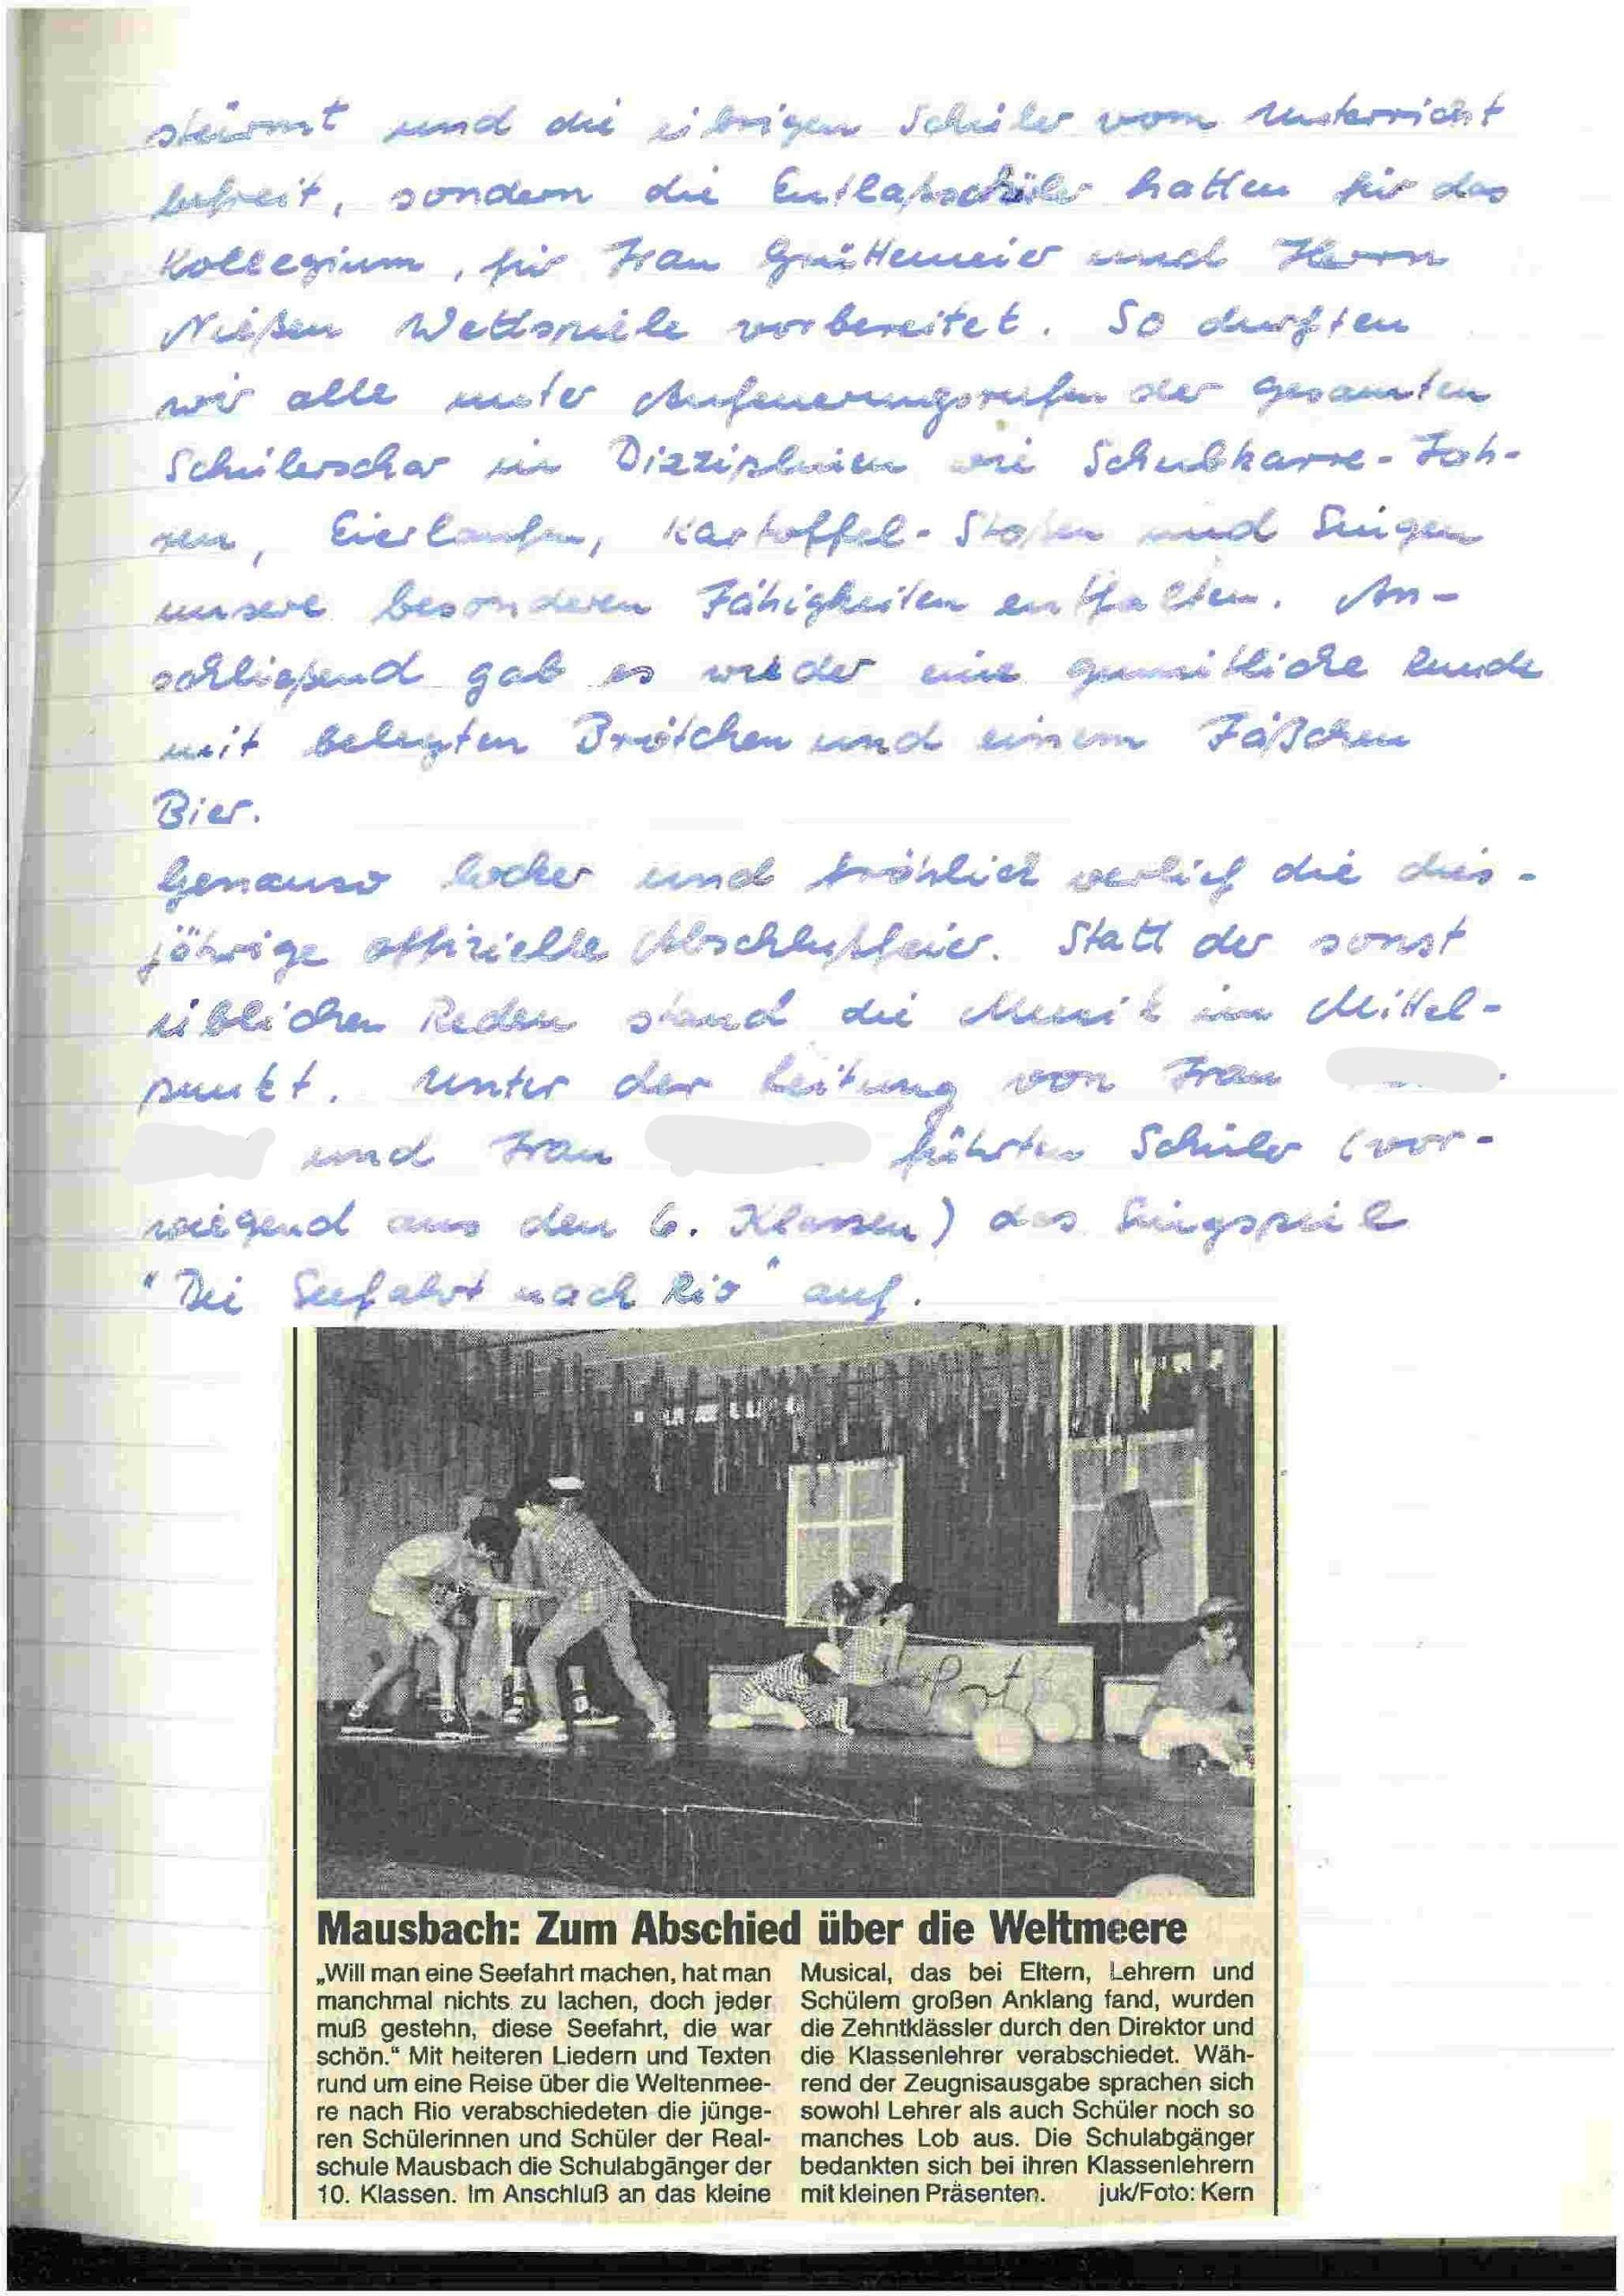 stürmt und die übrigen Schüler vom Unterricht
befreit, sondern die Entlaßschüler hatten für das
Kollegium, für Frau Grüttemeier und Herrn
Nießen Wettspiele vorbereitet. So durften
wir alle unter Anfeuerungsrufen der gesamten
Schülerschar in Disziplinen wie Schubkarre-Fah-
ren, Eierlaufen, Kartoffel-Stoßen und Singen
unsere besonderen Fähigkeiten entfalten. An-
schließend gab es wieder eine gemütliche Runde
mit belegten Brötchen und einem Fäßchen
Bier.
Genauso locker und fröhlich verlief die dies-
jährige offizielle Abschlußfeier. Statt der sonst
üblichen Reden stand die Musik im Mittel-
punkt. Unter der Leitung von Frau
und Frau führten Schüler (vor-
wiegend aus den 6. Klassen) das Singspiel
"Die Seefahrt nach Rio" auf.
Mausbach: Zum Abschied über die Weltmeere
„Will man eine Seefahrt machen, hat man
manchmal nichts zu lachen, doch jeder
muß gestehn, diese Seefahrt, die war
schön.“ Mit heiteren Liedern und Texten
rund um eine Reise über die Weltenmee-
re nach Rio verabschiedeten die jünge-
ren Schülerinnen und Schüler der Real-
schule Mausbach die Schulabgänger der
10. Klassen. Im Anschluß an das kleine
Musical, das bei Eltern, Lehrern und
Schülern großen Anklang fand, wurden
die Zehntklässler durch den Direktor und
die Klassenlehrer verabschiedet. Wäh-
rend der Zeugnisausgabe sprachen sich
sowohl Lehrer als auch Schüler noch so
manches Lob aus. Die Schulabgänger
bedankten sich bei ihren Klassenlehrern
mit kleinen Präsenten. juk/Foto: Kern